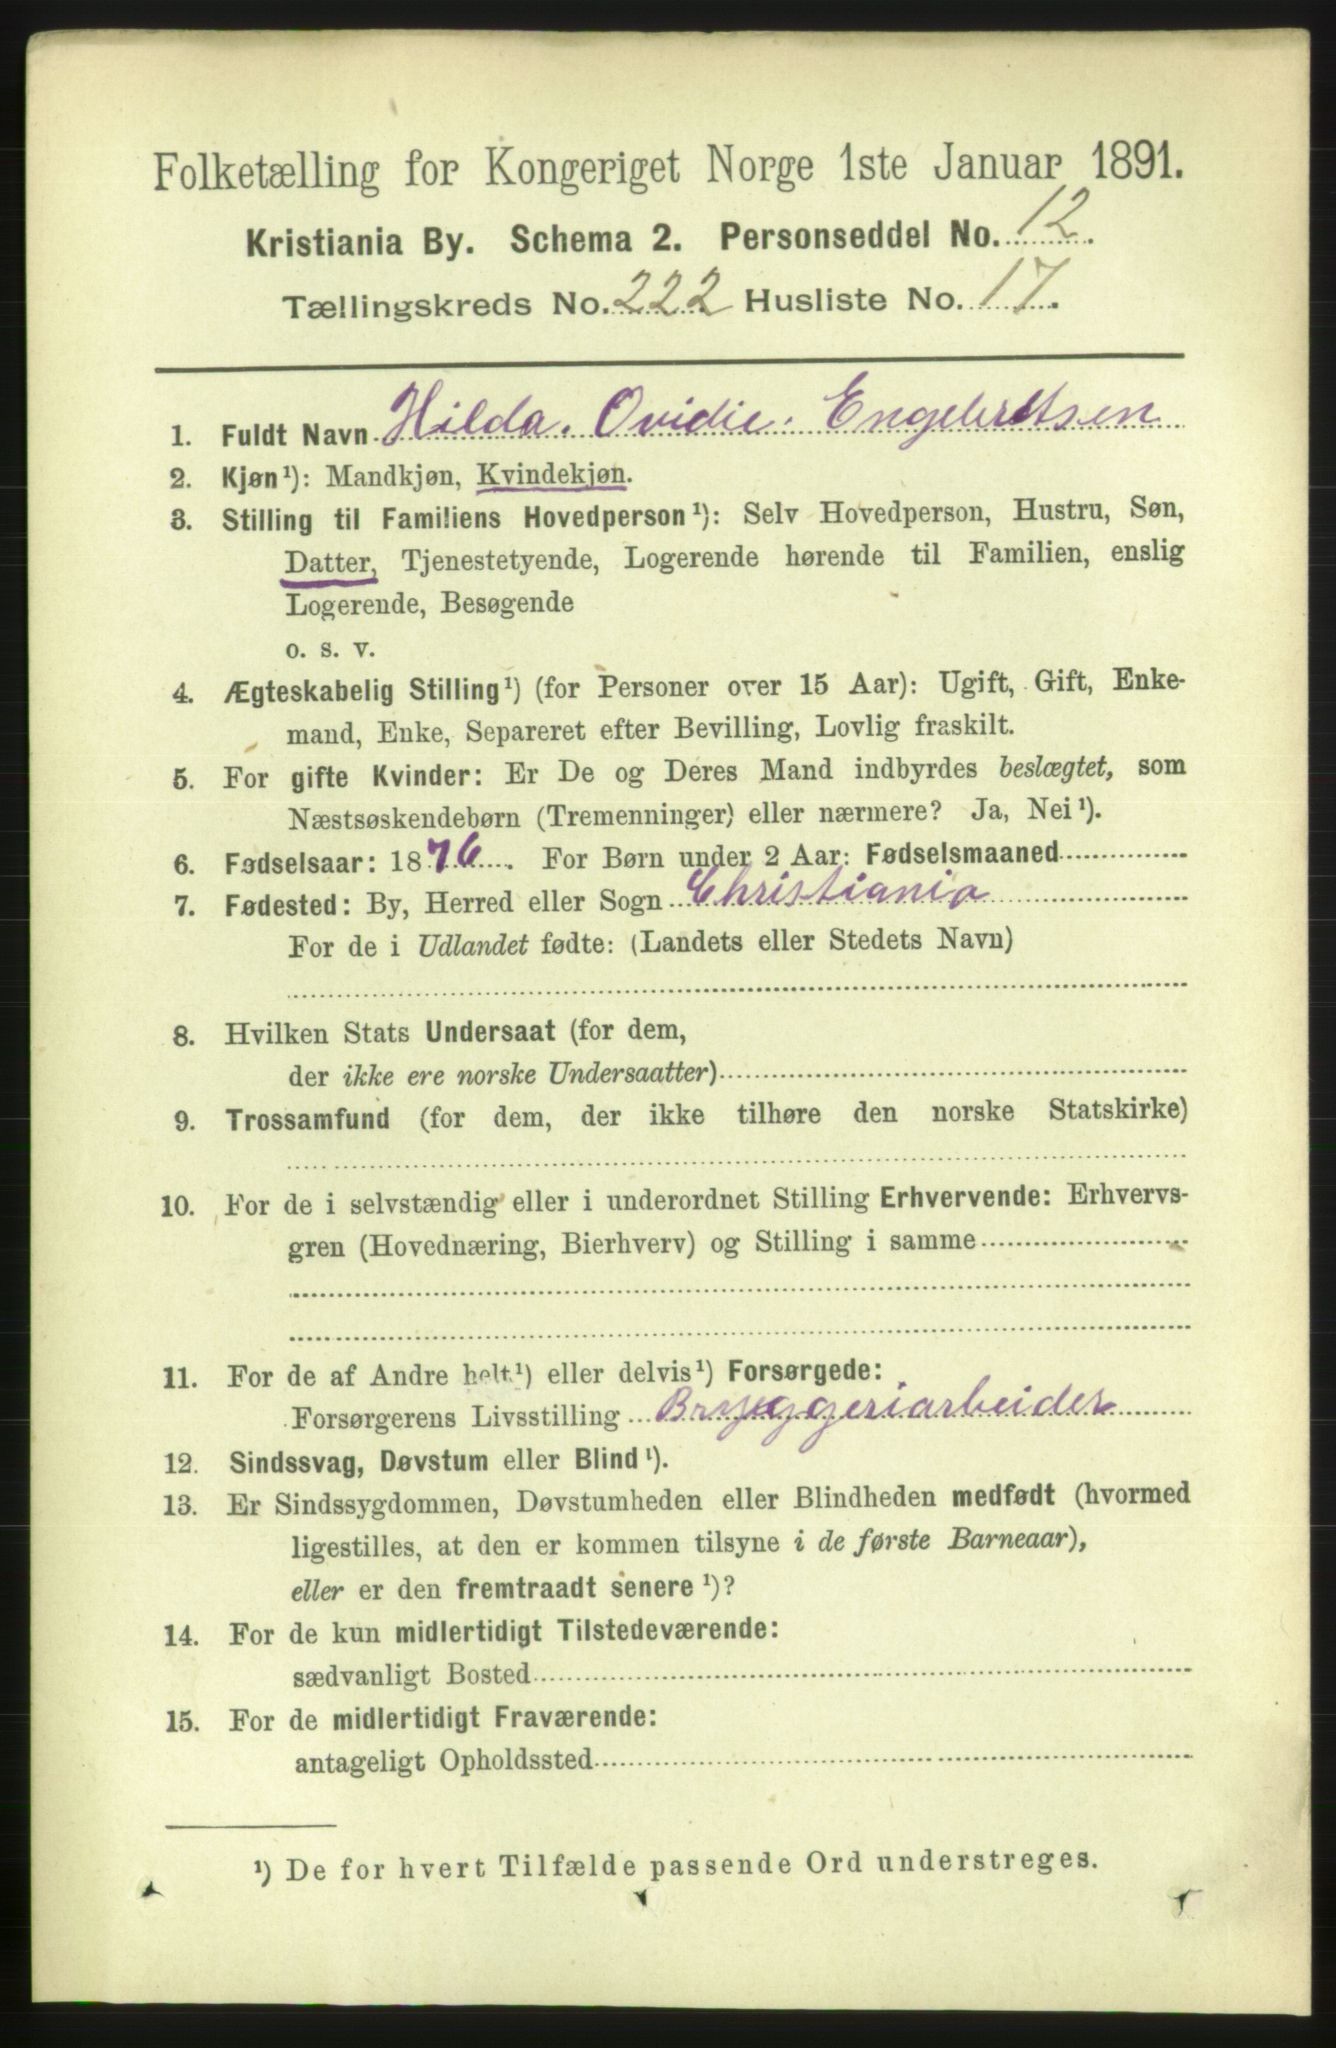 Folketælling for Kongeriget Norge 1ste Januar 1891.
Kristiania By. Schema 2. Personseddel No. 12.
Tællingskreds No. 222 Husliste No. 17.
1. Fuldt Navn Hilda. Ovidie. Engebretsen
2. Kjøn¹): Mandkjøn, Kvindekjøn.
3. Stilling til Familiens Hovedperson¹): Selv Hovedperson, Hustru, Søn,
Datter, Tjenestetyende, Logerende hørende til Familien, enslig
Logerende, Besøgende
o. s. v.
4. Ægteskabelig Stilling¹) (for Personer over 15 Aar): Ugift, Gift, Enke-
mand, Enke, Separeret efter Bevilling, Lovlig fraskilt.
5. For gifte Kvinder: Er De og Deres Mand indbyrdes beslægtet, som
Næstsøskendebørn (Tremenninger) eller nærmere? Ja, Nei¹).
6. Fødselsaar: 1876. For Børn under 2 Aar: Fødselsmaaned
7. Fødested: By, Herred eller Sogn Christiania
For de i Udlandet fødte: (Landets eller Stedets Navn)
8. Hvilken Stats Undersaat (for dem,
der ikke ere norske Undersaatter)
9. Trossamfund (for dem, der ikke tilhøre den norske Statskirke)
10. For de i selvstændig eller i underordnet Stilling Erhvervende: Erhvervs-
gren (Hovednæring, Bierhverv) og Stilling i samme
11. For de af Andre helt¹) eller delvis¹) Forsørgede:
Forsørgerens Livsstilling Bryggeriarbeider
12. Sindssvag, Døvstum eller Blind¹).
13. Er Sindssygdommen, Døvstumheden eller Blindheden medfødt (hvormed
ligestilles, at den er kommen tilsyne i de første Barneaar),
eller er den fremtraadt senere¹)?
14. For de kun midlertidigt Tilstedeværende:
sædvanligt Bosted
15. For de midlertidigt Fraværende:
antageligt Opholdssted
¹) De for hvert Tilfælde passende Ord understreges.